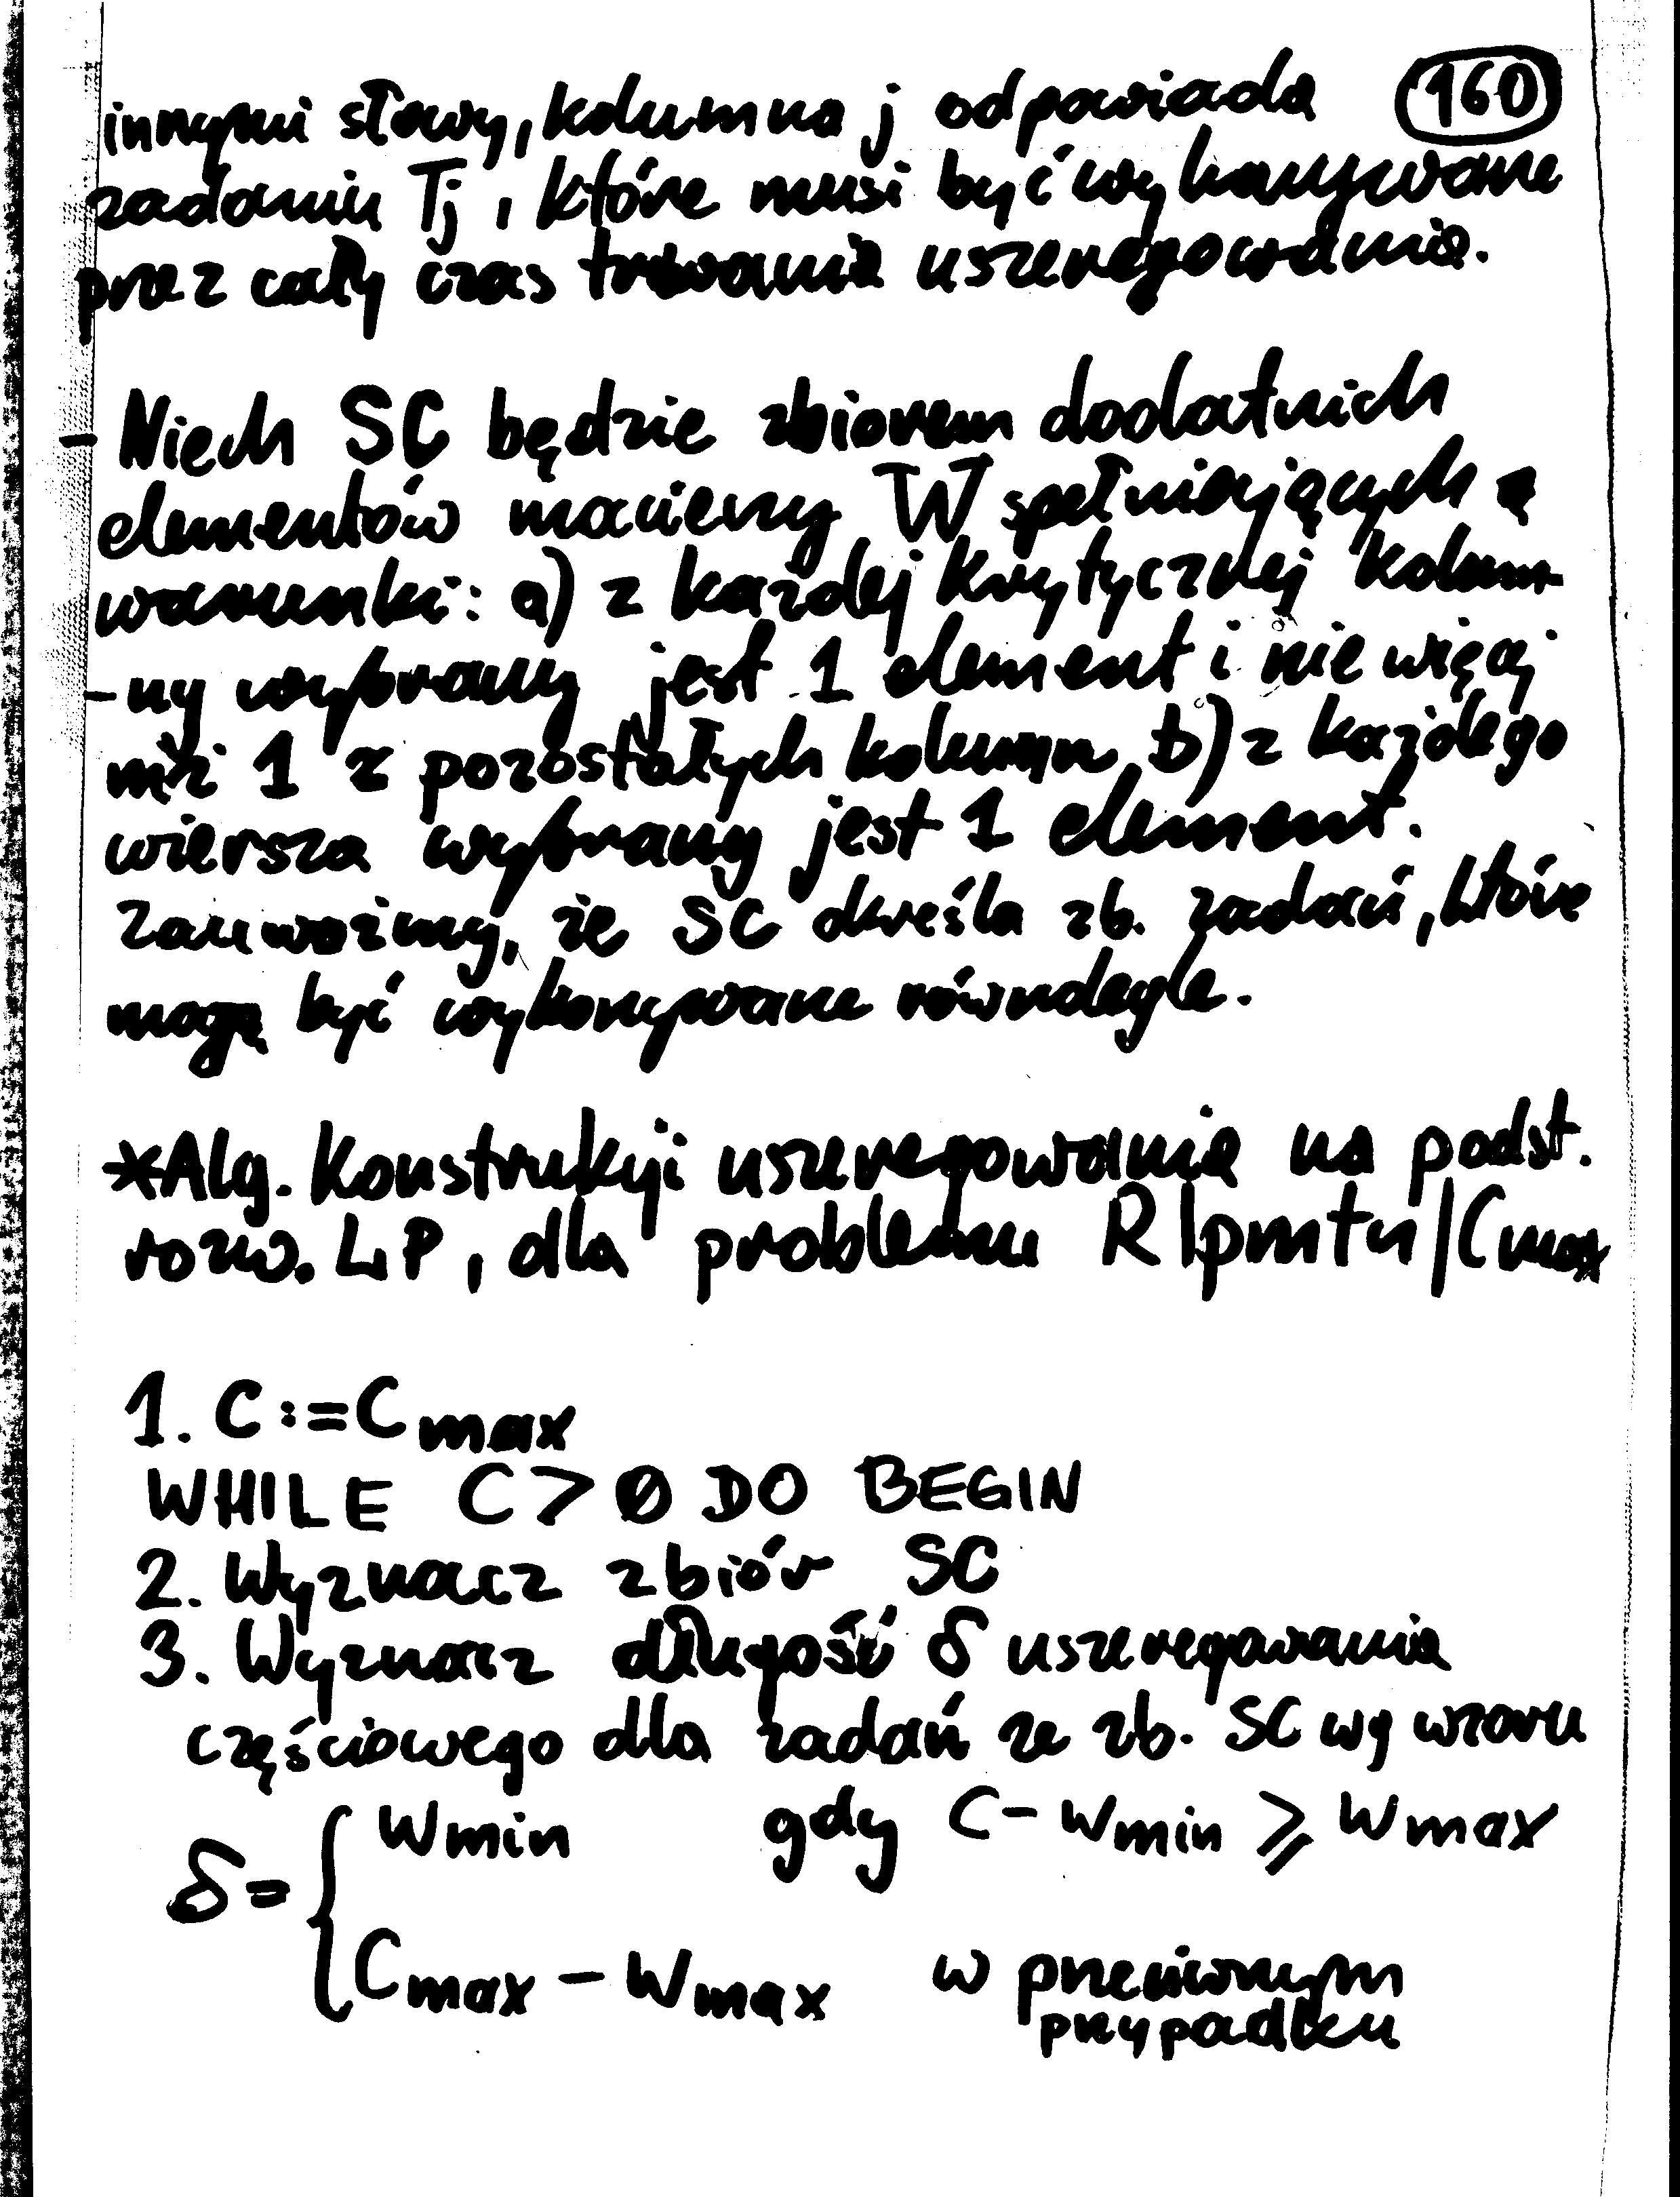 innymi słowy, kolumna j odpowiada 160
zadaniu Tj, które musi być wykonywane
przez cały czas trwania uszeregowania.
- Niech SC będzie zbiorem dodatnich
elementów macierzy W spełniających
warunki: a) z każdej krytycznej kolum-
-ny wybrany jest 1 element i nie więcej
niż 1 z pozostałych kolumn b) z każdego
wiersza wybrany jest 1 element.
Zauważmy, że SC określa zb. zadań, które
mogą być wykonywane równolegle.
*Alg. Konstrukcji uszeregowania na podst.
rozw. LP, dla problemu R|pmtn|Cmax
1. C:=Cmax
WHILE C>0 DO BEGIN
2. Wyznacz zbiór SC
3. Wyznacz długość δ uszeregowania
częściowego dla zadań ze zb. SC wg wzoru
δ = { Wmin gdy C-Wmin ⩾ Wmax
Cmax - Wmax w przeciwnym
przypadku